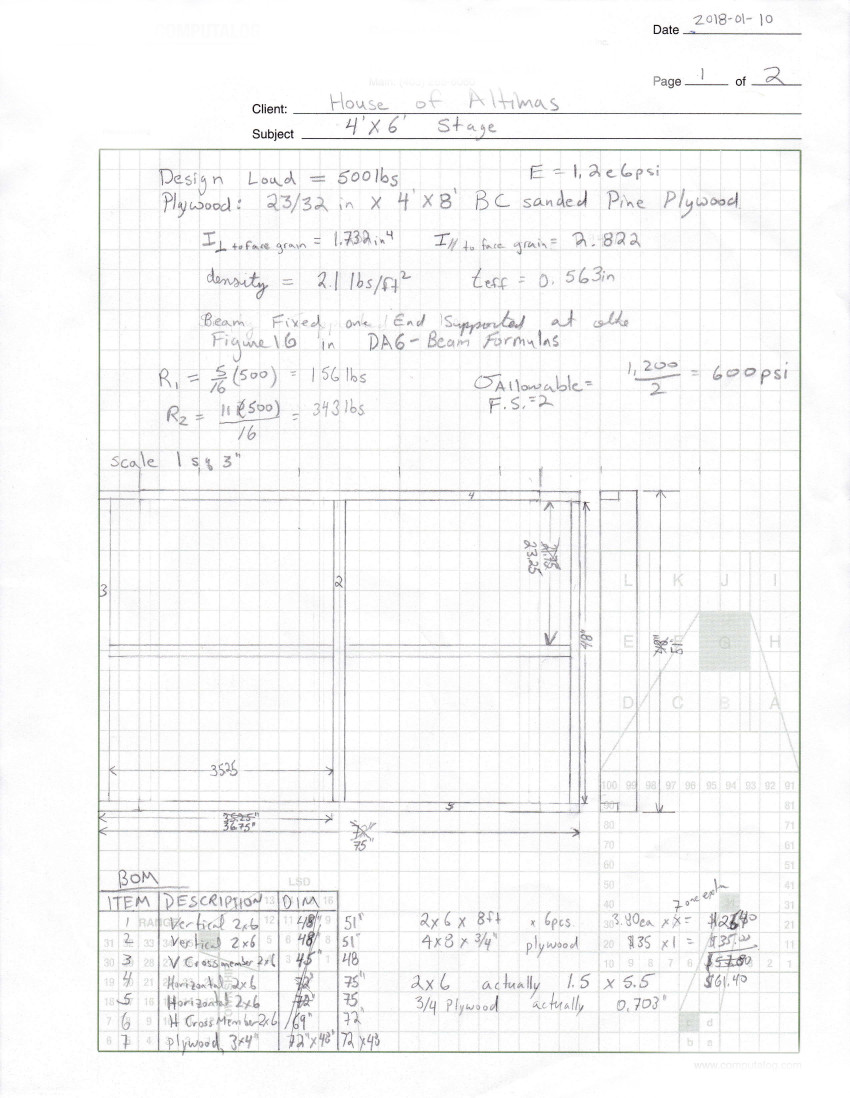 Date 2018-01-10
Page 1 of 2
Client: House of Altimas
Subject 4'X6' Stage
Design Load = 500lbs E = 1.2e6psi
Plywood: 23/32 in X 4'X8' BC sanded Pine Plywood
I⊥ to face grain = 1.732in⁴ I// to face grain = 2.822
density = 2.1 lbs/ft² teff = 0.563in
Beam Fixed one End Supported at othe
Figure 16 in DA6-Beam Formulas
R₁ = 5/16 (500) = 156lbs σAllowable = 1,200/2 = 600psi
F.S.=2
R₂ = 11(500)/16 = 343lbs
scale 1 sq 3"
4
23.25
3
2
48"
51"
L K J I
E F G H
D C B A
3525
5
100 99 98 97 96 95 94 93 92 91
81
80 71
70 61
60 51
50 41
40 31
30 21
20 11
35.25"
36.75"
72"
75"
BOM
LSD
ITEM DESCRIPTION DIM
7 one extra
1 Vertical 2x6 48" 51" 2x6 x 8ft x 6pcs 3.90ea x
2 Vertical 2x6 48" 51" 4x8 x 3/4" plywood $35 x1 = $35.00
3 V Crossmember 2x6 45" 48
4 Horizontal 2x6 72" 75" 2x6 actually 1.5 x 5.5 $61.40
5 Horizontal 2x6 72" 75 3/4 Plywood actually 0.703"
6 H CrossMember 2x6 69" 72"
7 plywood 3x4" 72"x48" 72x48
c d
b a
www.computalog.com